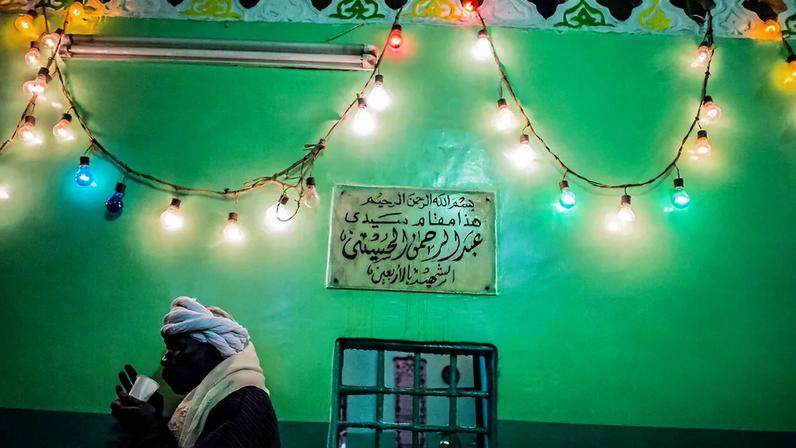 بسم الله الرحمن الرحيم
هذا مقام سيدى
عبد الرحمن الحسينى
الشهيد بالأربعين